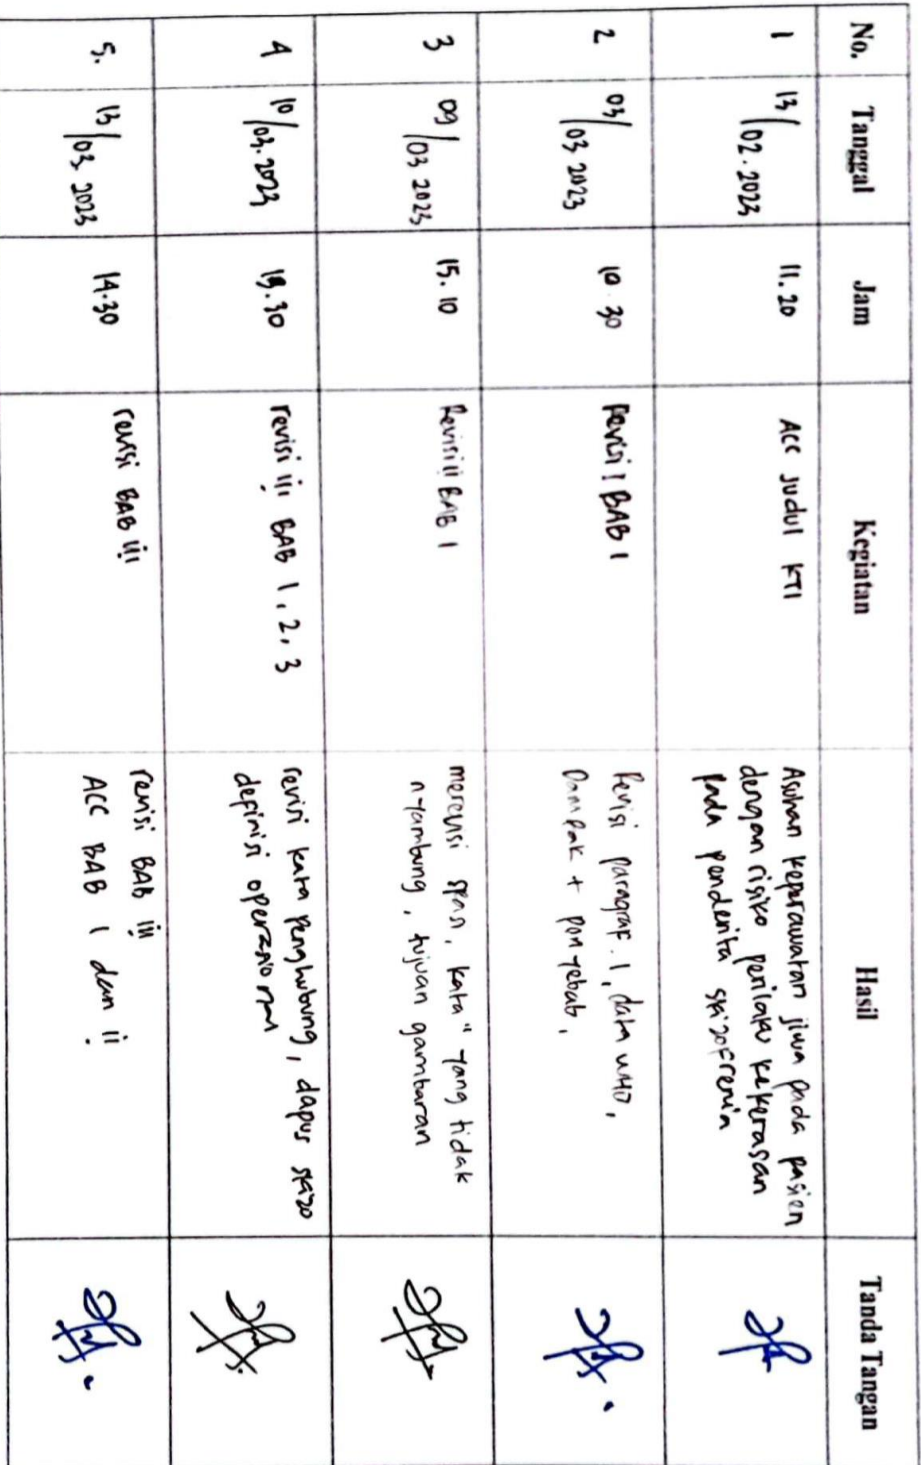 No. Tanggal Jam Kegiatan Hasil Tanda Tangan
1 13/02.2023 11.20 ACC Judul KTI Asuhan keperawatan jiwa pada pasien
dengan risiko perilaku kekerasan
pada penderita skizofrenia
2 03/03 2023 10.30 Revisi I BAB 1 Revisi paragraf. 1, data WHO,
Dampak + penyebab,
3 09/03 2023 15.10 Revisi II BAB 1 merevisi spasi, kata" yang tidak
nyambung, tujuan gambaran
4 10/03.2023 .30 revisi III BAB 1, 2, 3 revisi kata penghubung, dapus skizo
definisi operasional
5. 13/03.2023 14.30 revisi BAB III revisi BAB III
ACC BAB I dan II